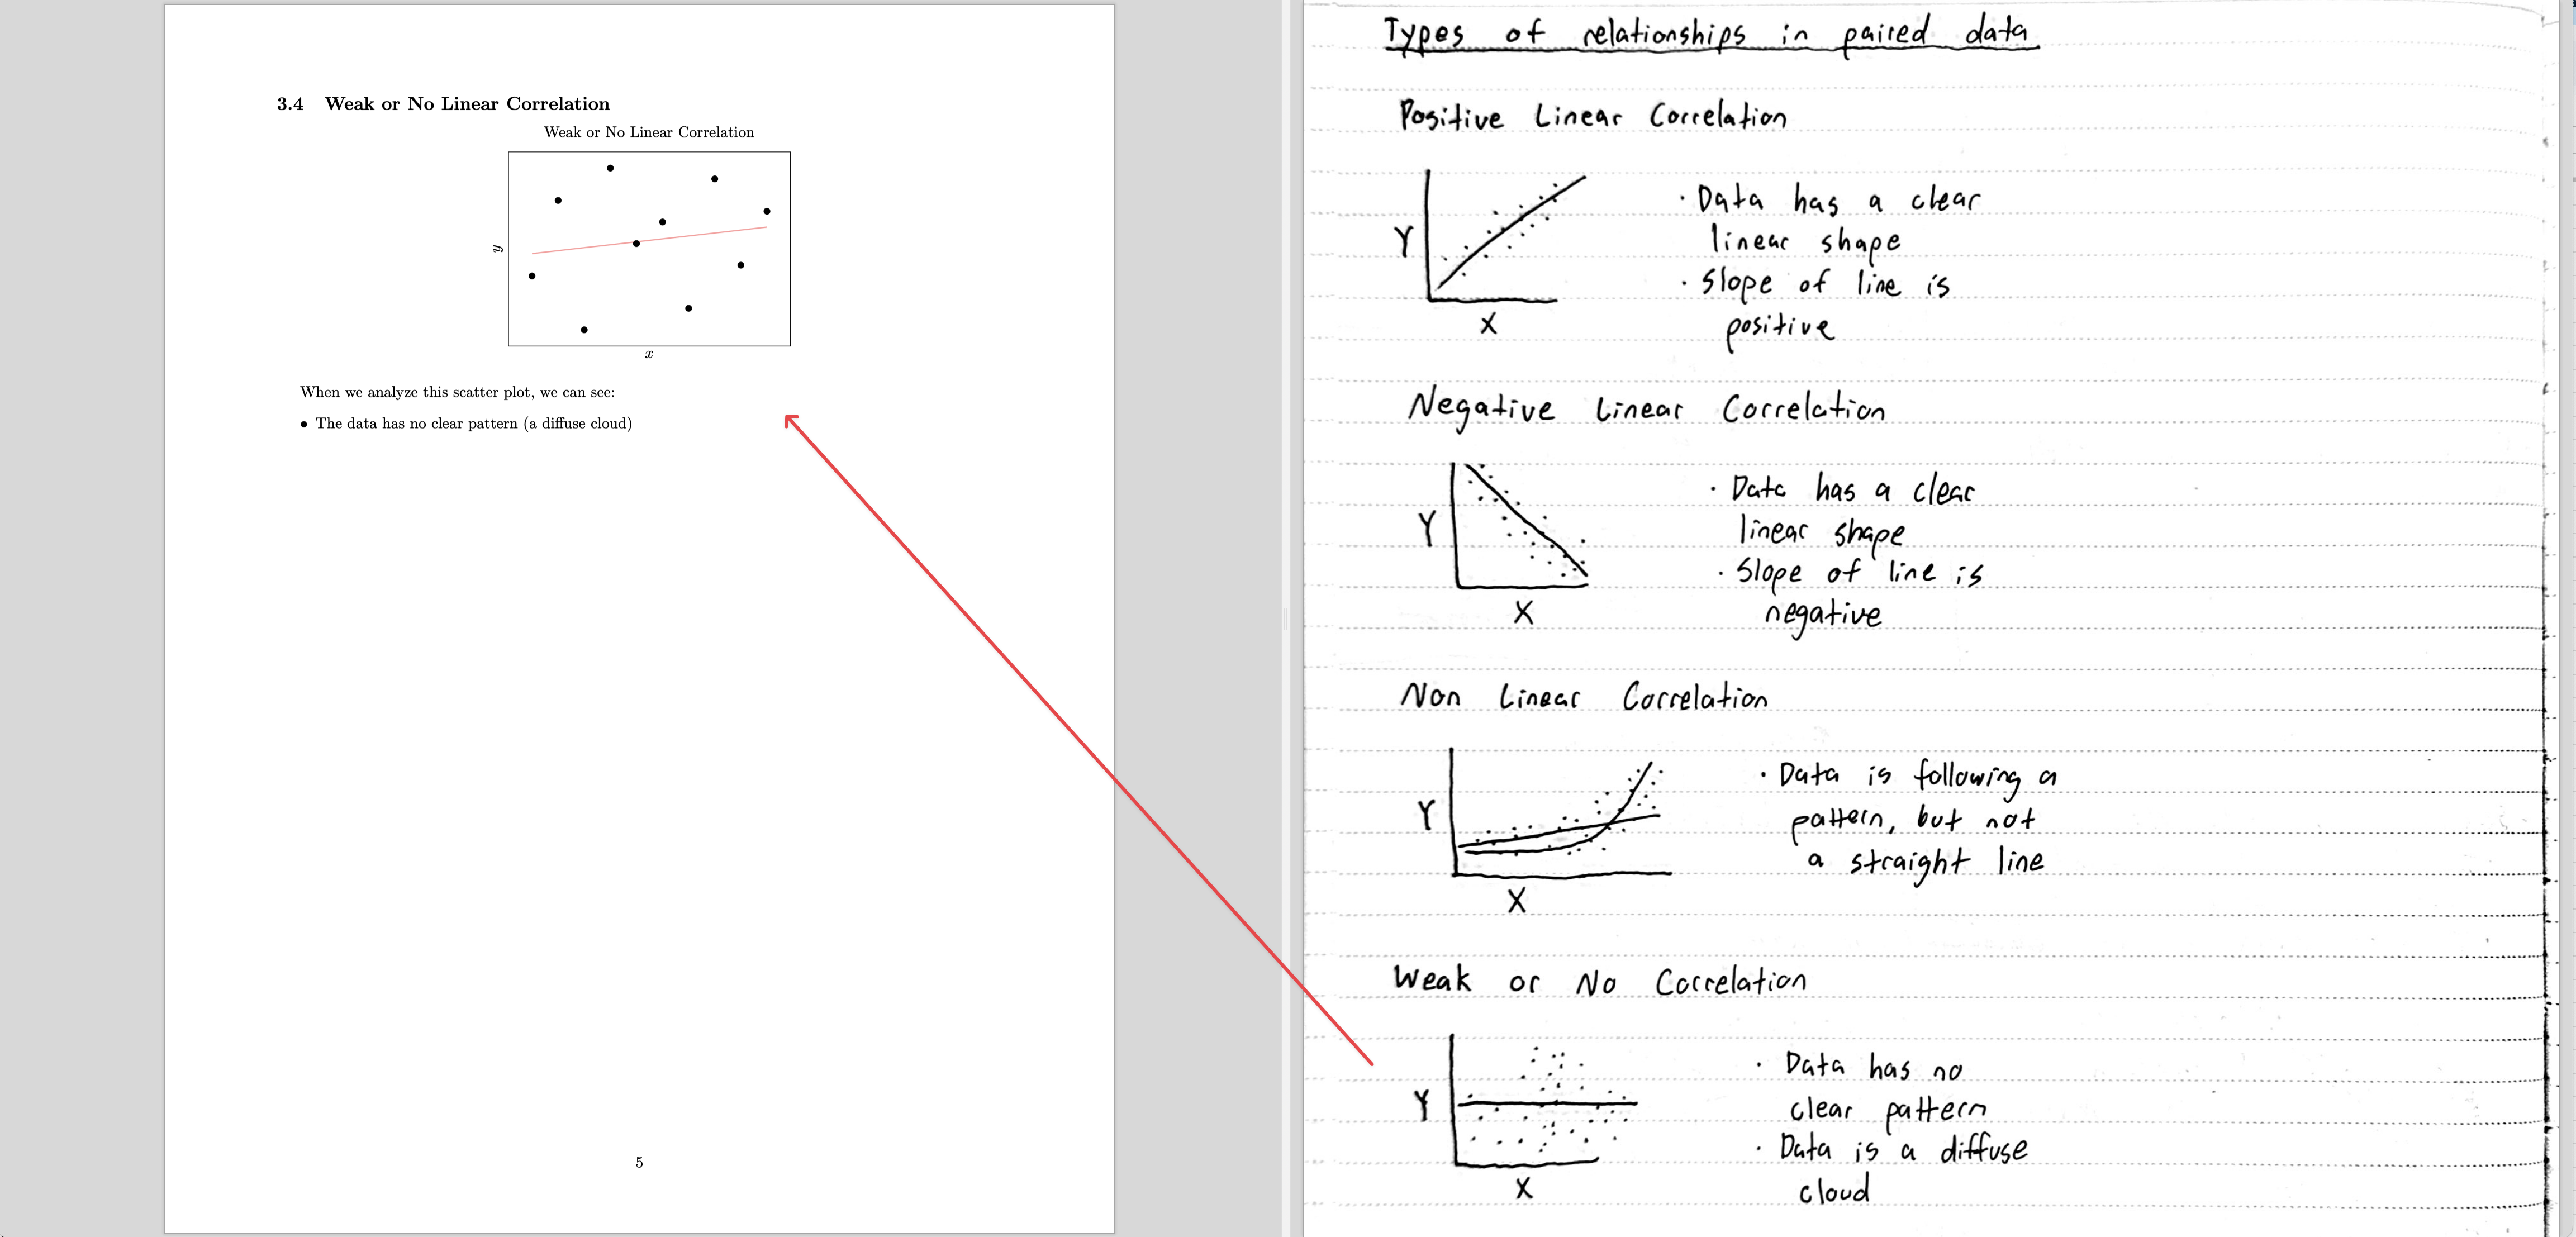 3.4 Weak or No Linear Correlation
Weak or No Linear Correlation
y
x
When we analyze this scatter plot, we can see:
• The data has no clear pattern (a diffuse cloud)
5
Types of relationships in paired data
Positive Linear Correlation
Y
X
· Data has a clear
linear shape
· Slope of line is
positive
Negative Linear Correlation
Y
X
· Data has a clear
linear shape
· Slope of line is
negative
Non Linear Correlation
Y
X
· Data is following a
pattern, but not
a straight line
Weak or No Correlation
Y
X
· Data has no
clear pattern
· Data is a diffuse
cloud